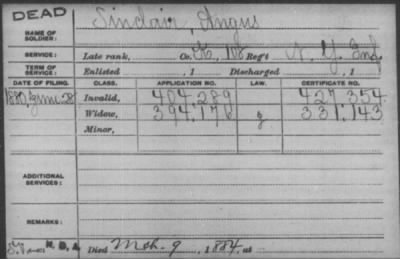 DEAD
NAME OF SOLDIER: Sinclair, Angus
SERVICE: Late rank, Co. K, Reg't N. Y. Inf
TERM OF SERVICE: Enlisted , 1 Discharged , 1
DATE OF FILING. CLASS. APPLICATION NO. LAW. CERTIFICATE NO.
1880, June 28 Invalid, 404,289 427,354
Widow, 394,176 331,143
Minor,
ADDITIONAL SERVICES:
REMARKS:
Died Mch. 9, 1884, at